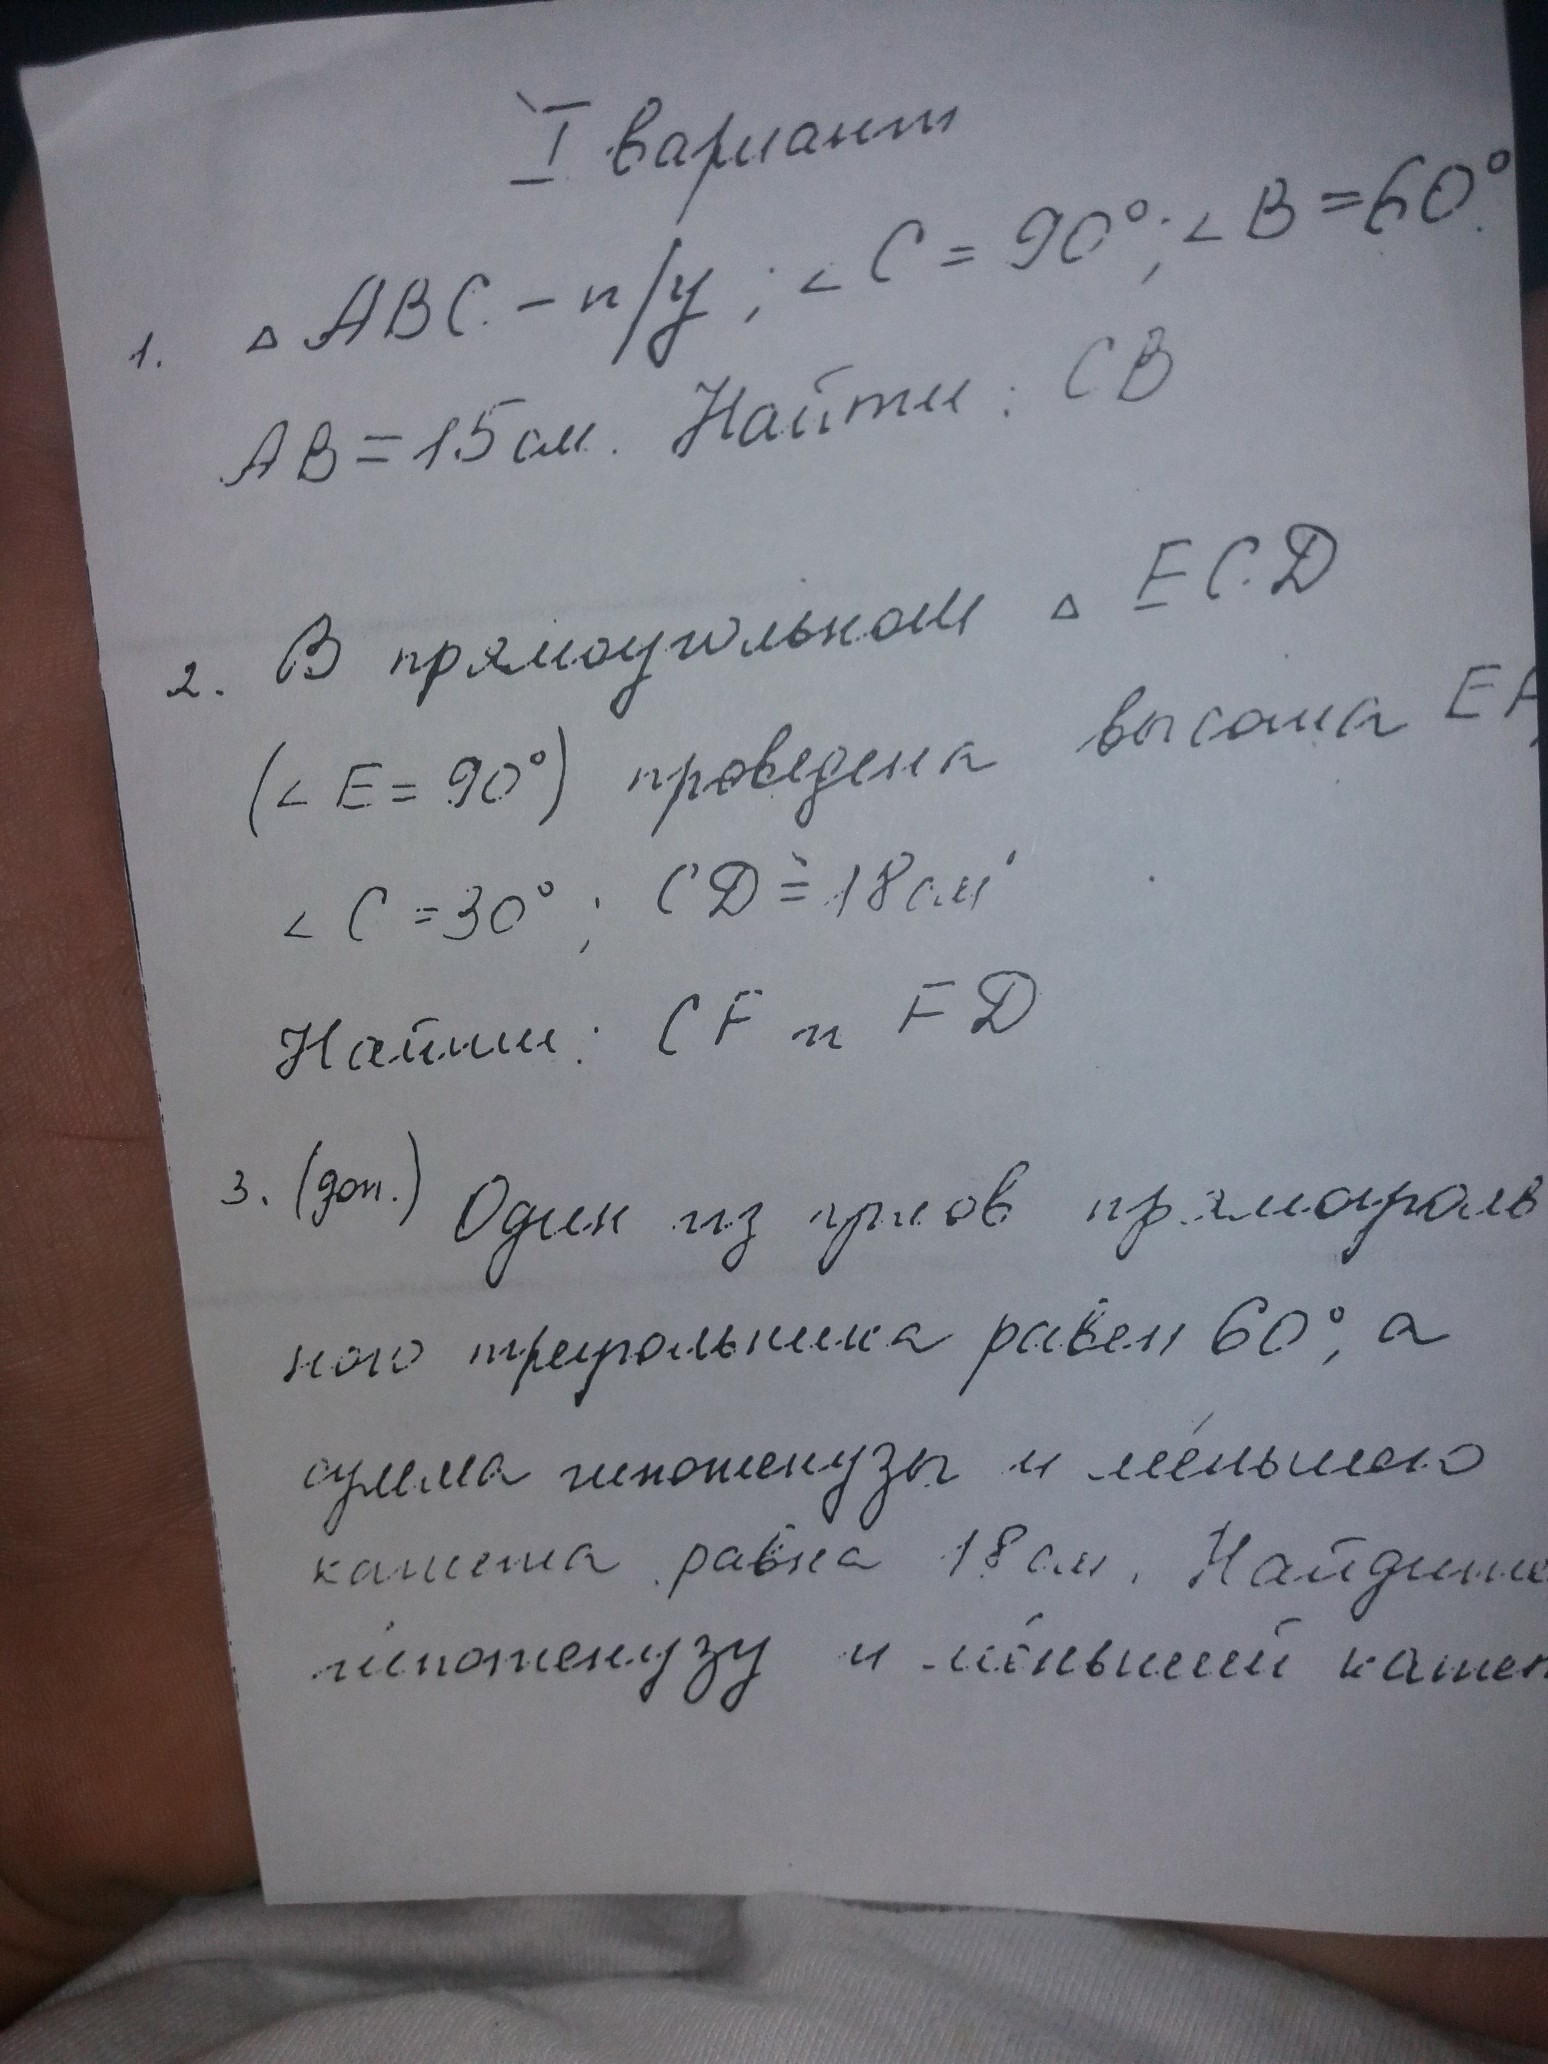 I вариант
1. △ABC - п/у; ∠C = 90°; ∠B = 60°.
AB = 15 см. Найти: CB
2. В прямоугольном △ ECD
(∠E = 90°) проведена высота EF,
∠C = 30°; CD = 18 см
Найти: CF и FD
3. (доп.) Один из углов прямоуголь
ного треугольника равен 60°, а
сумма гипотенузы и меньшего
катета равна 18 см. Найдите
гипотенузу и меньший катет